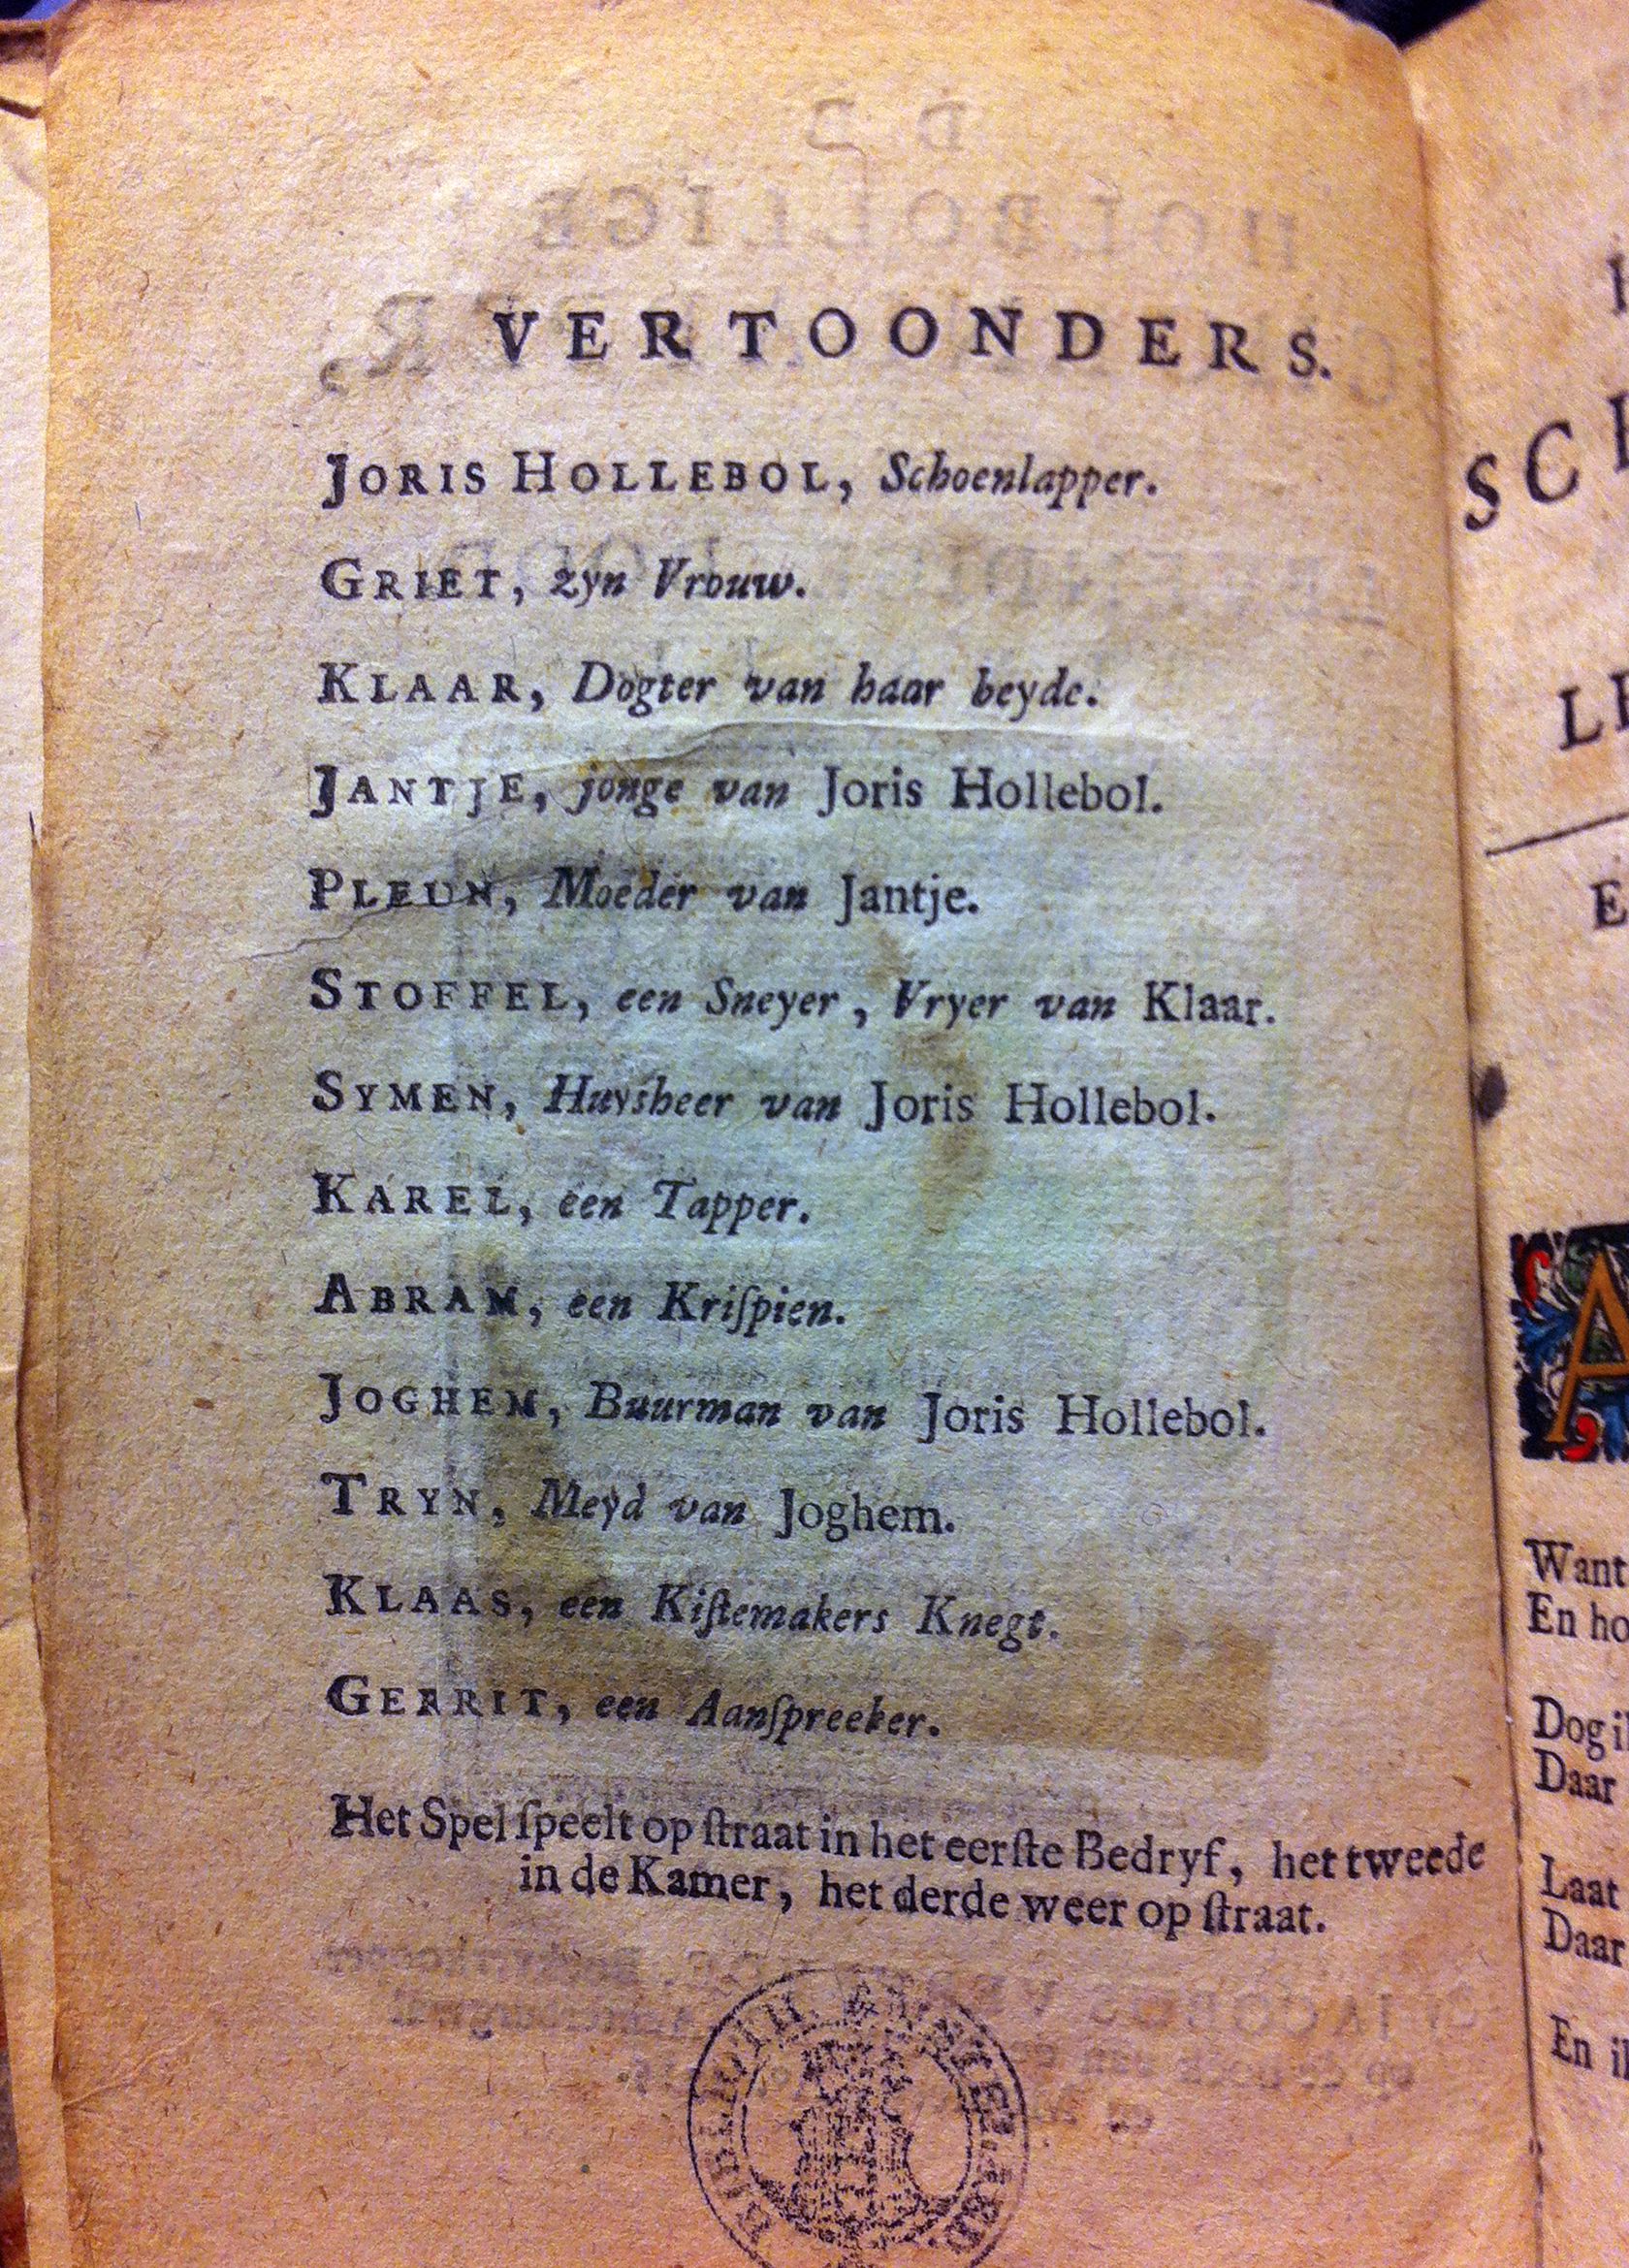 VERTOONDERS.
JORIS HOLLEBOL, Schoenlapper.
GRIET, zyn Vrouw.
KLAAR, Dogter van haar beyde.
JANTJE, jonge van Joris Hollebol.
PLEUN, Moeder van Jantje.
STOFFEL, een Sneyer, Vryer van Klaar.
SYMEN, Huysheer van Joris Hollebol.
KAREL, een Tapper.
ABRAM, een Kriſpien.
JOGHEM, Buurman van Joris Hollebol.
TRYN, Meyd van Joghem.
KLAAS, een Kiſtemakers Knegt.
GERRIT, een Aanſpreeker.
Het Spel ſpeelt op ſtraat in het eerſte Bedryf, het tweede
in de Kamer, het derde weer op ſtraat.
A
Want
En ho
Dog
Daar
Laat
Daar
En